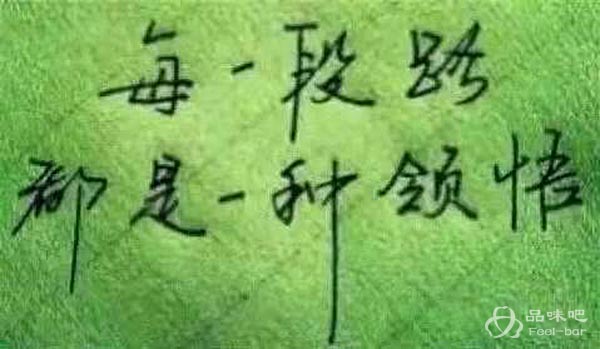 每一段路
都是一种领悟
品味吧
Feel-bar